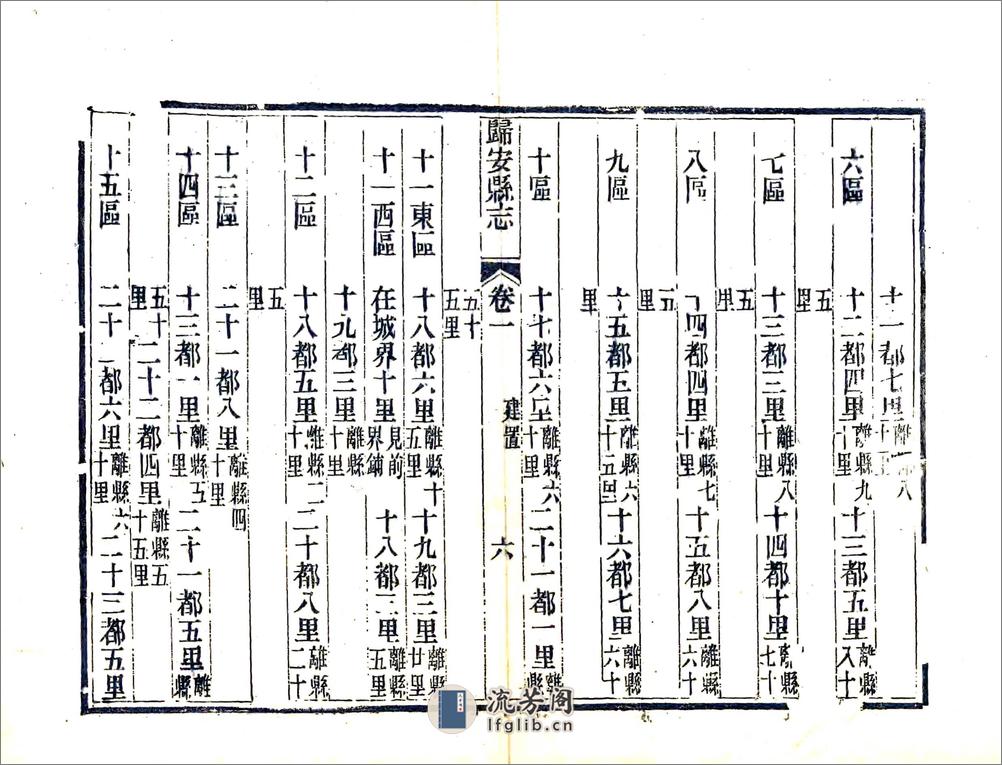 十一都七里離縣八十五里
六區 十二都四里離縣九十里十三都五里離縣八十
五里
七區 十三都三里離縣八十里十四都十里離縣七十
五里
八區 十四都四里離縣七十里十五都八里離縣六十
五里
九區 十五都五里離縣六十五里十六都七里離縣六十
里
十區 十七都六里離縣六十里二十一都一里離縣
歸安縣志 卷一 建置 六
五十五里
十一東區 十八都六里離縣十五里十九都三里離縣廿里
十一西區 在城界十里見前界鋪 十八都里離縣五里
十九都三里離縣十里
十二區 十八都五里離縣二十里二十都八里離縣二十
五里
十三區 二十一都八里離縣四十里
十四區 十三都一里離縣五十里二十一都五里離縣
五十里 二十二都四里離縣五十五里
十五區 二十一都六里離縣六十里二十三都五里
流芳阁
lfglib.cn